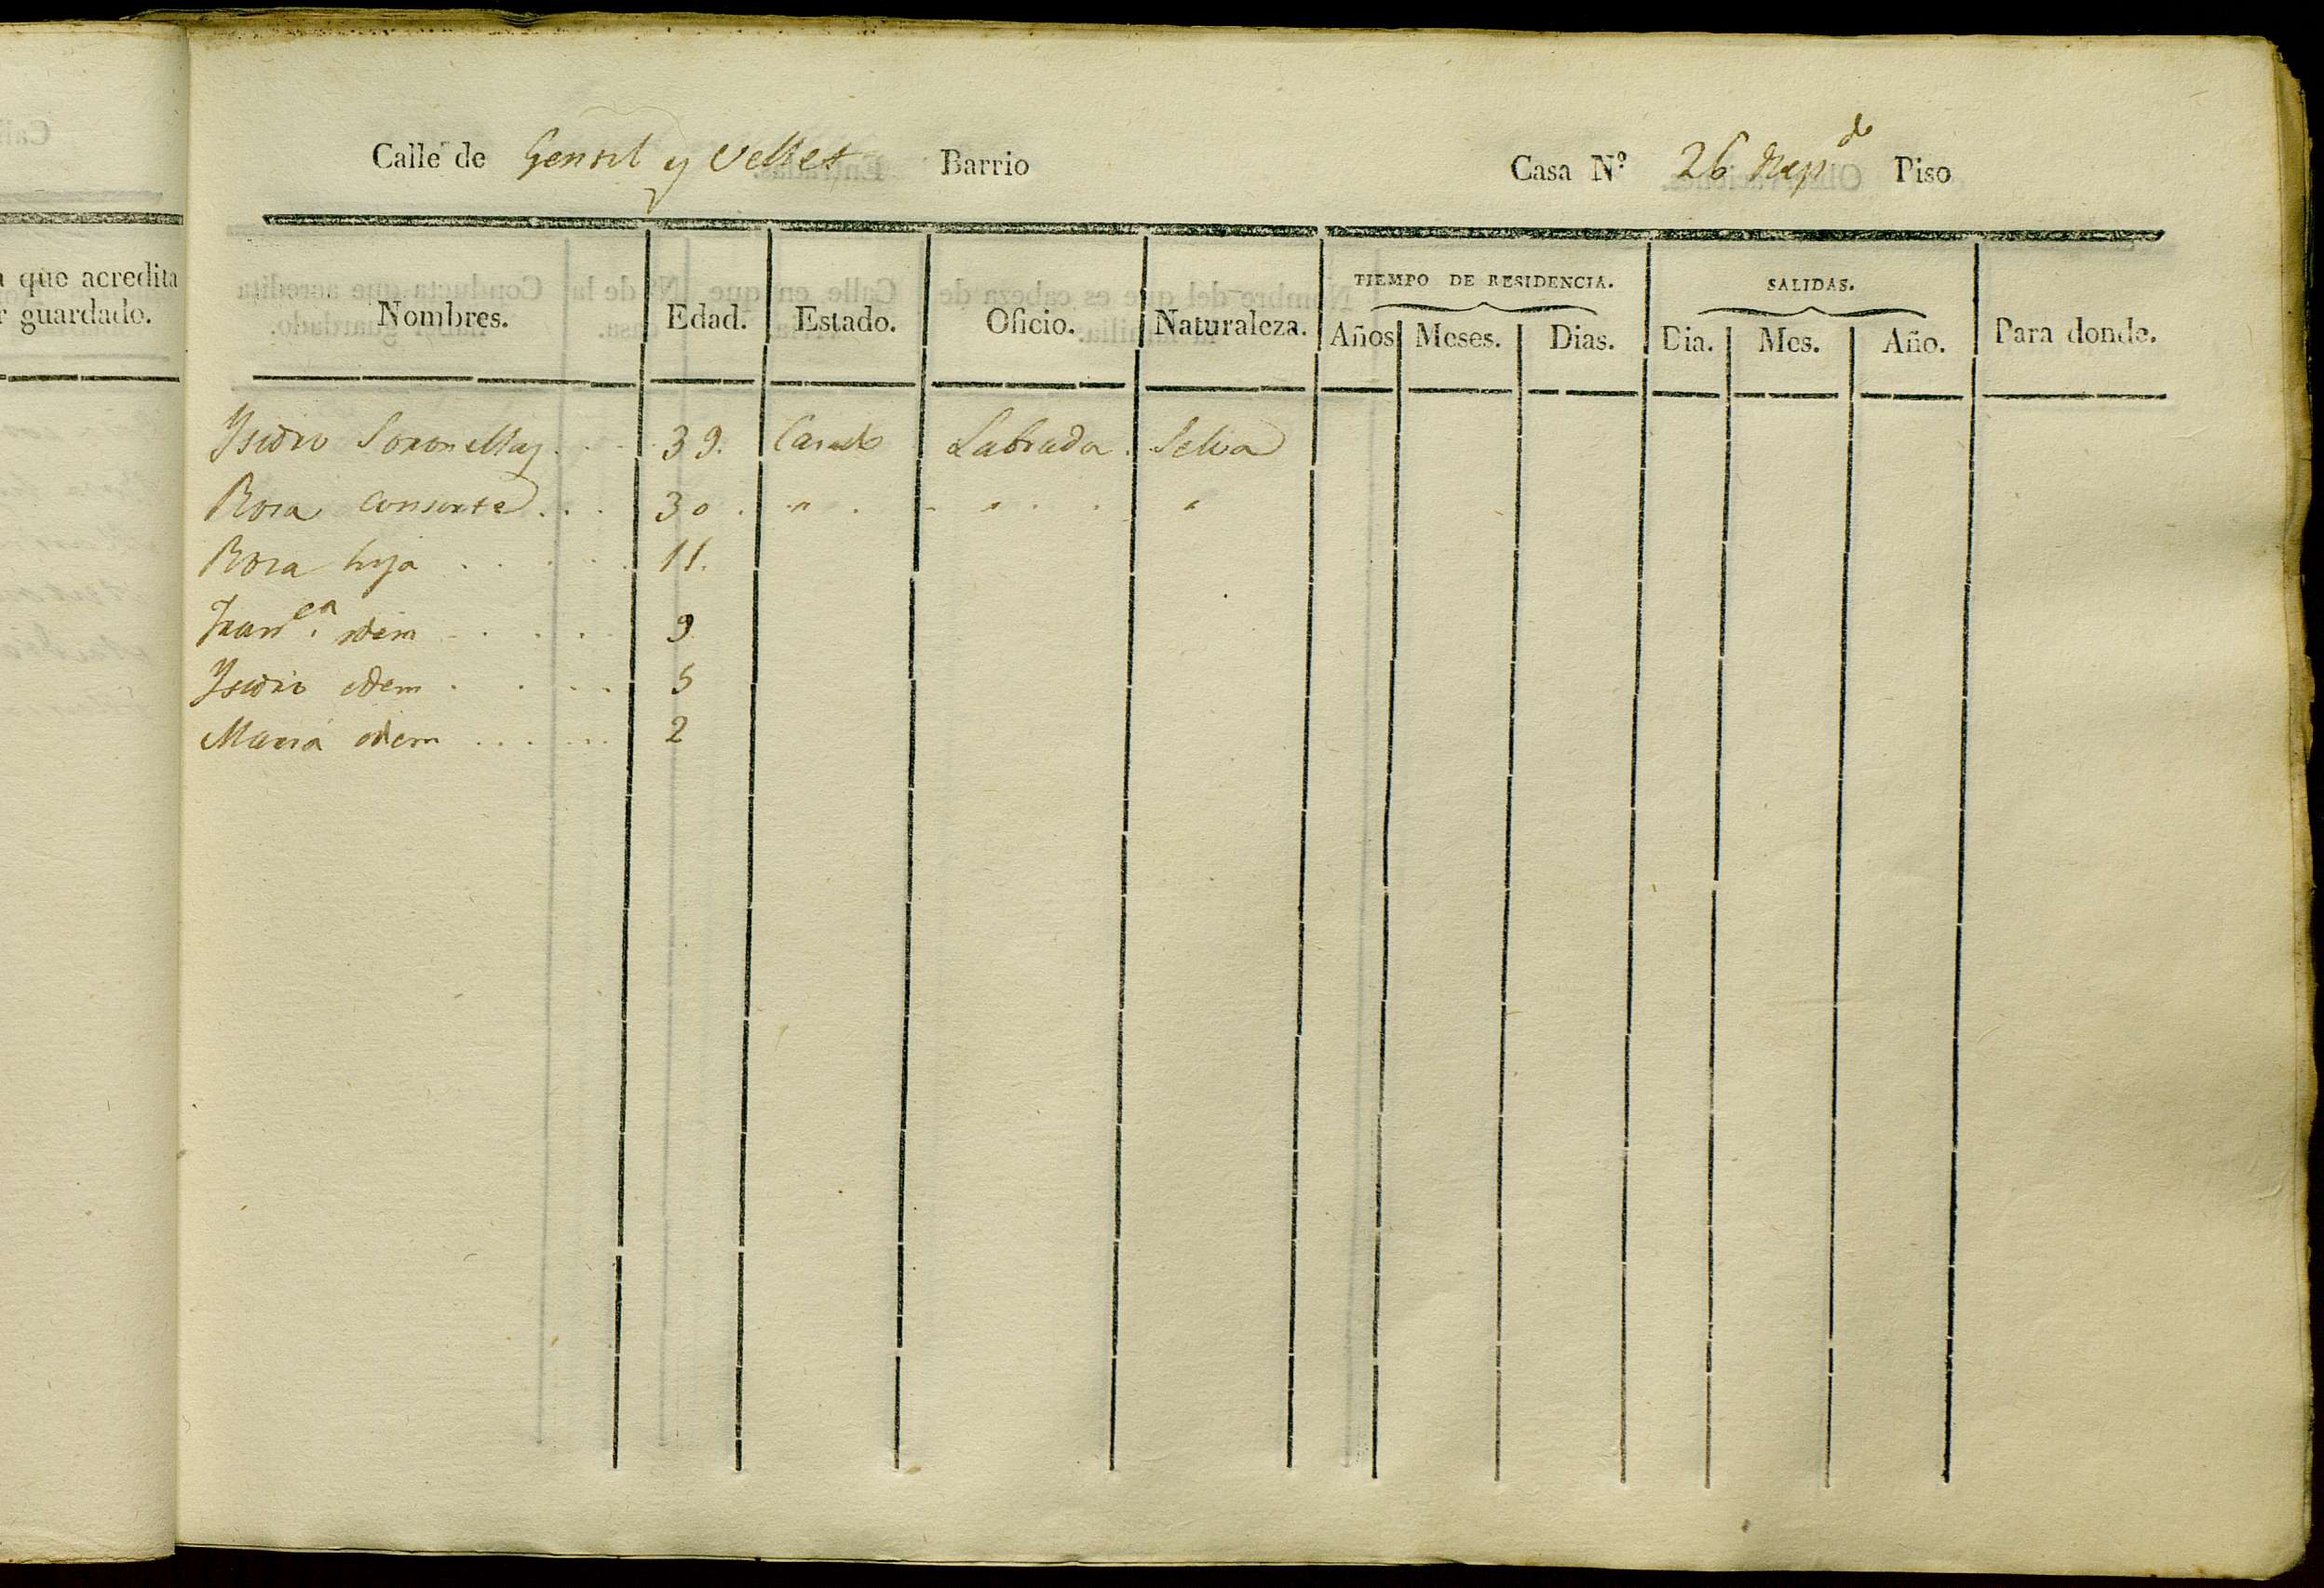 Calle de Gensel y Vellet Barrio Casa Nº 26 Rep.do Piso
a que acredita
r guardado.
TIEMPO DE RESIDENCIA. SALIDAS.
Nombres. Edad. Estado. Oficio. Naturaleza. Años Meses. Dias. Dia. Mes. Año. Para donde.
Ysidro Soronellas . . . 39. Casado Labrador . Selva
Rosa consorte . . . 30 . " . . " . . . "
Rosa hija . . . . . 11.
Franca. idem . . . . 9
Ysidro idem . . . . 5
Maria idem . . . . . . 2